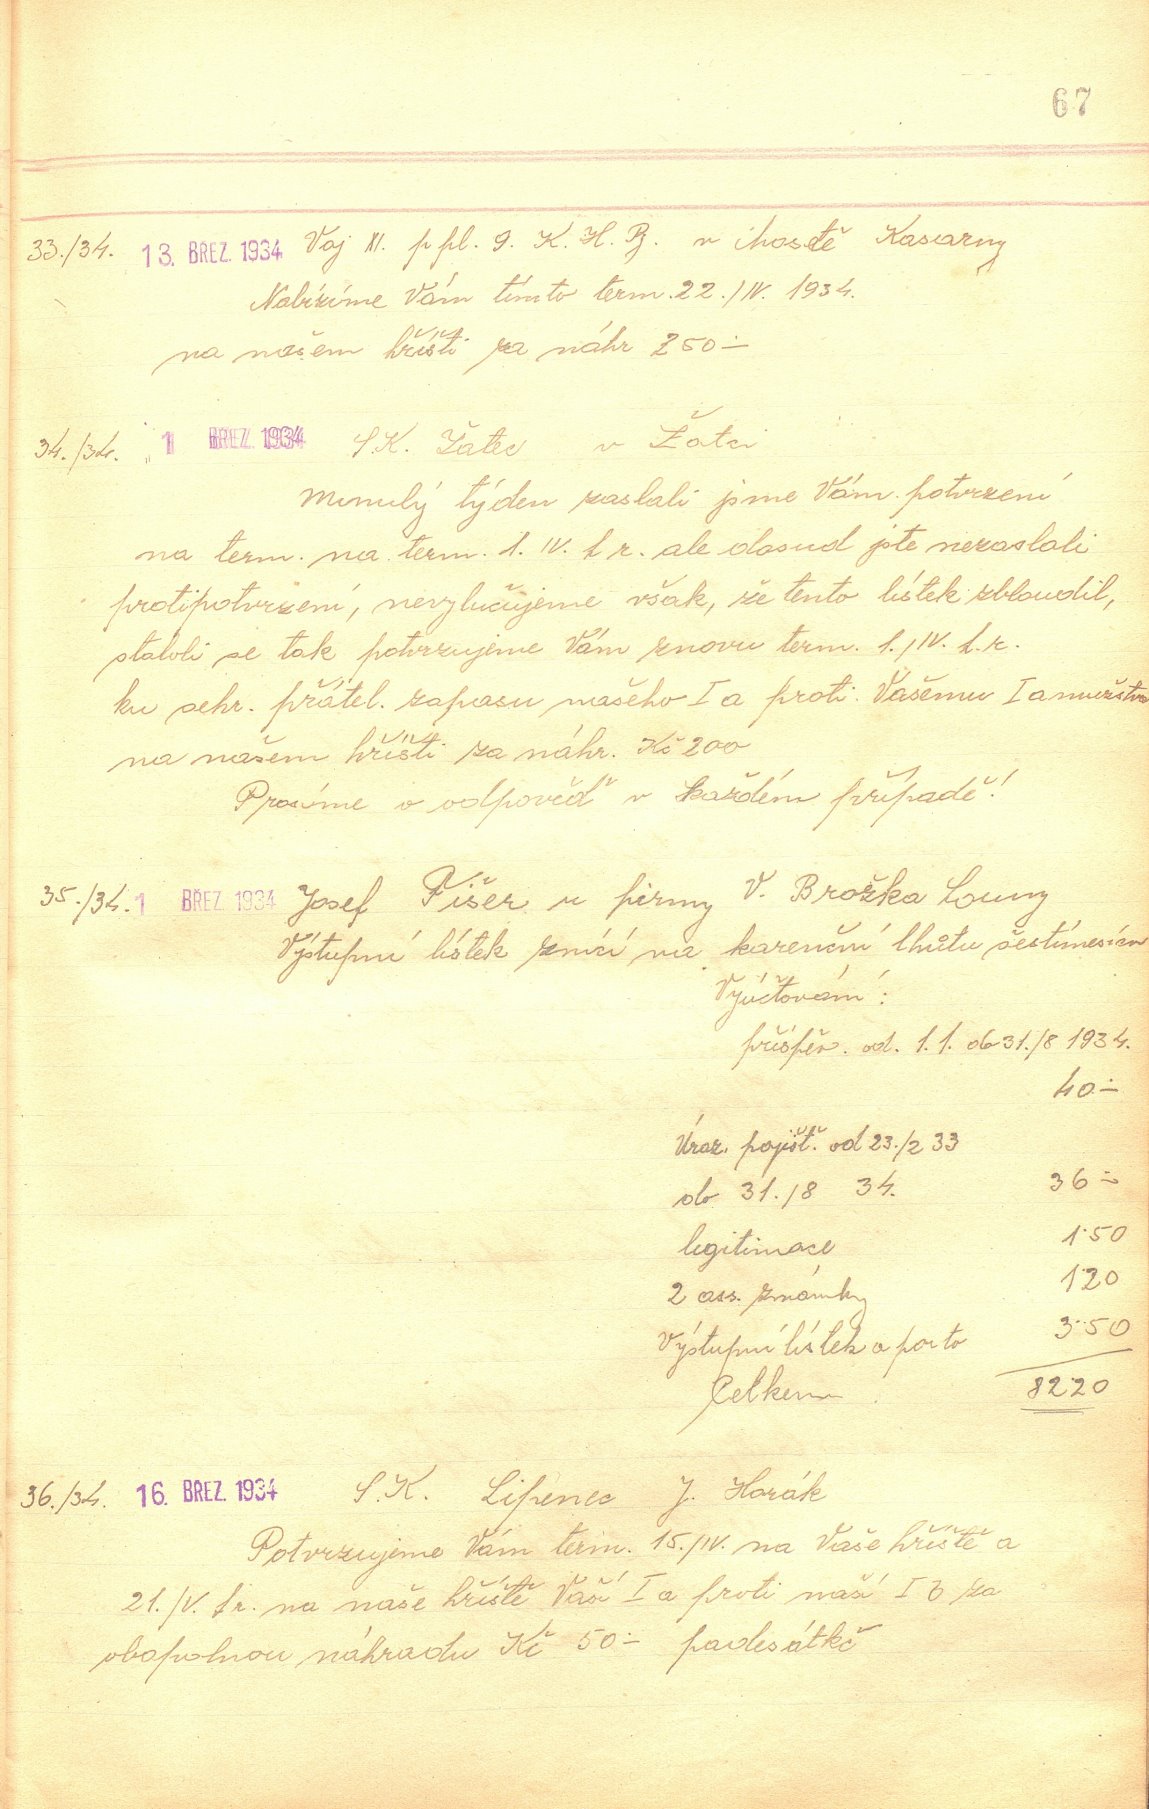 67
33./34. 13. BŘEZ. 1934 Voj XI. p pl. 9. K. H. B. v Kasarny
Nabízíme Vám tímto term. 22./IV. 1934.
na našem hřišti za náhr 250·-
34./34. 1 BŘEZ. 1934 S.K. Žatec v Žatci
Minulý týden zaslali jsme Vám potvrzení
na term. na term. 1. IV. t r. ale dosud jste nezaslali
protipotvrzení, nevylučujeme však, že tento lístek zbloudil,
staloli se tak potvrzujeme Vám znovu term. 1./IV. t.r.
ku sehr. přátel. zapasu našeho I a proti Vašemu I a mužstvu
na našem hřišti za náhr. Kč 200
Prosíme o odpověď v každém případě!
35./34. 1 BŘEZ. 1934 Josef Fišer u firmy V. Brožka Louny
Výstupní lístek znící na karenční lhůtu šestiměsíční
Vyúčtování:
příspěv. od. 1.1. do 31./8 1934.
40·-
Úraz. pojišť. od 23./2 33
do 31./8 34. 36·-
legitimace 1·50
2 ass. známky 1·20
Výstupní lístek a porto 3·50
Celkem 82·20
36./34. 16. BŘEZ. 1934 S.K. Lipenec J. Horák
Potvrzujeme Vám term. 15./IV. na Vaše hříště a
21./V. t r. na naše hříště Vaší I a proti naší I b za
obapolnou náhradu Kč 50·- padesátkč